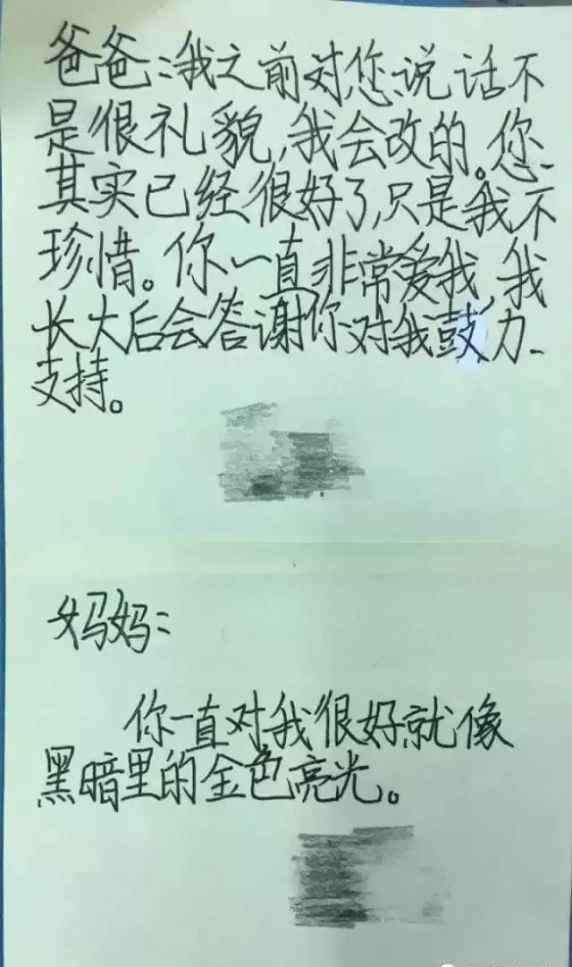 爸爸:我之前对您说话不
是很礼貌,我会改的。您
其实已经很好了,只是我不
珍惜。你一直非常爱我,我
长大后会答谢你对我鼓力
支持。
妈妈:
你一直对我很好,就像
黑暗里的金色亮光。